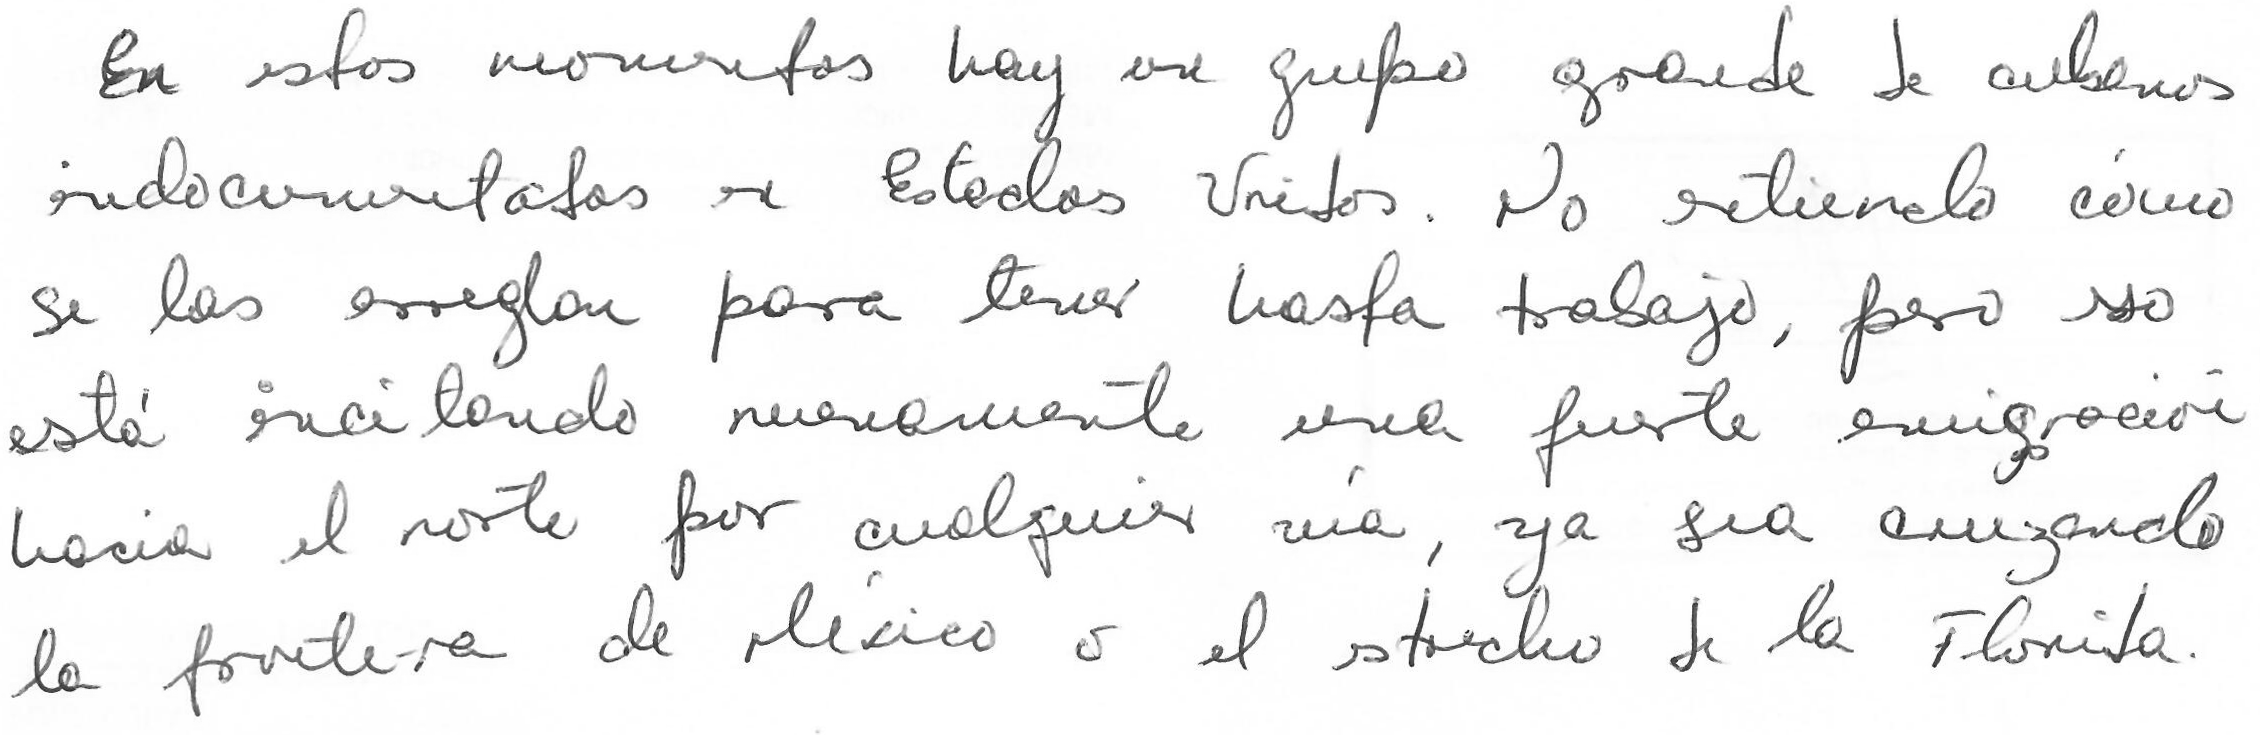 En estos momentos hay un grupo grande de cubanos
indocumentados en Estados Unidos. No entiendo cómo
se las arreglan para tener hasta trabajo, pero eso
está incitando nuevamente una fuerte emigración
hacia el norte por cualquier vía, ya sea cruzando
la frontera de México o el estrecho de la Florida.